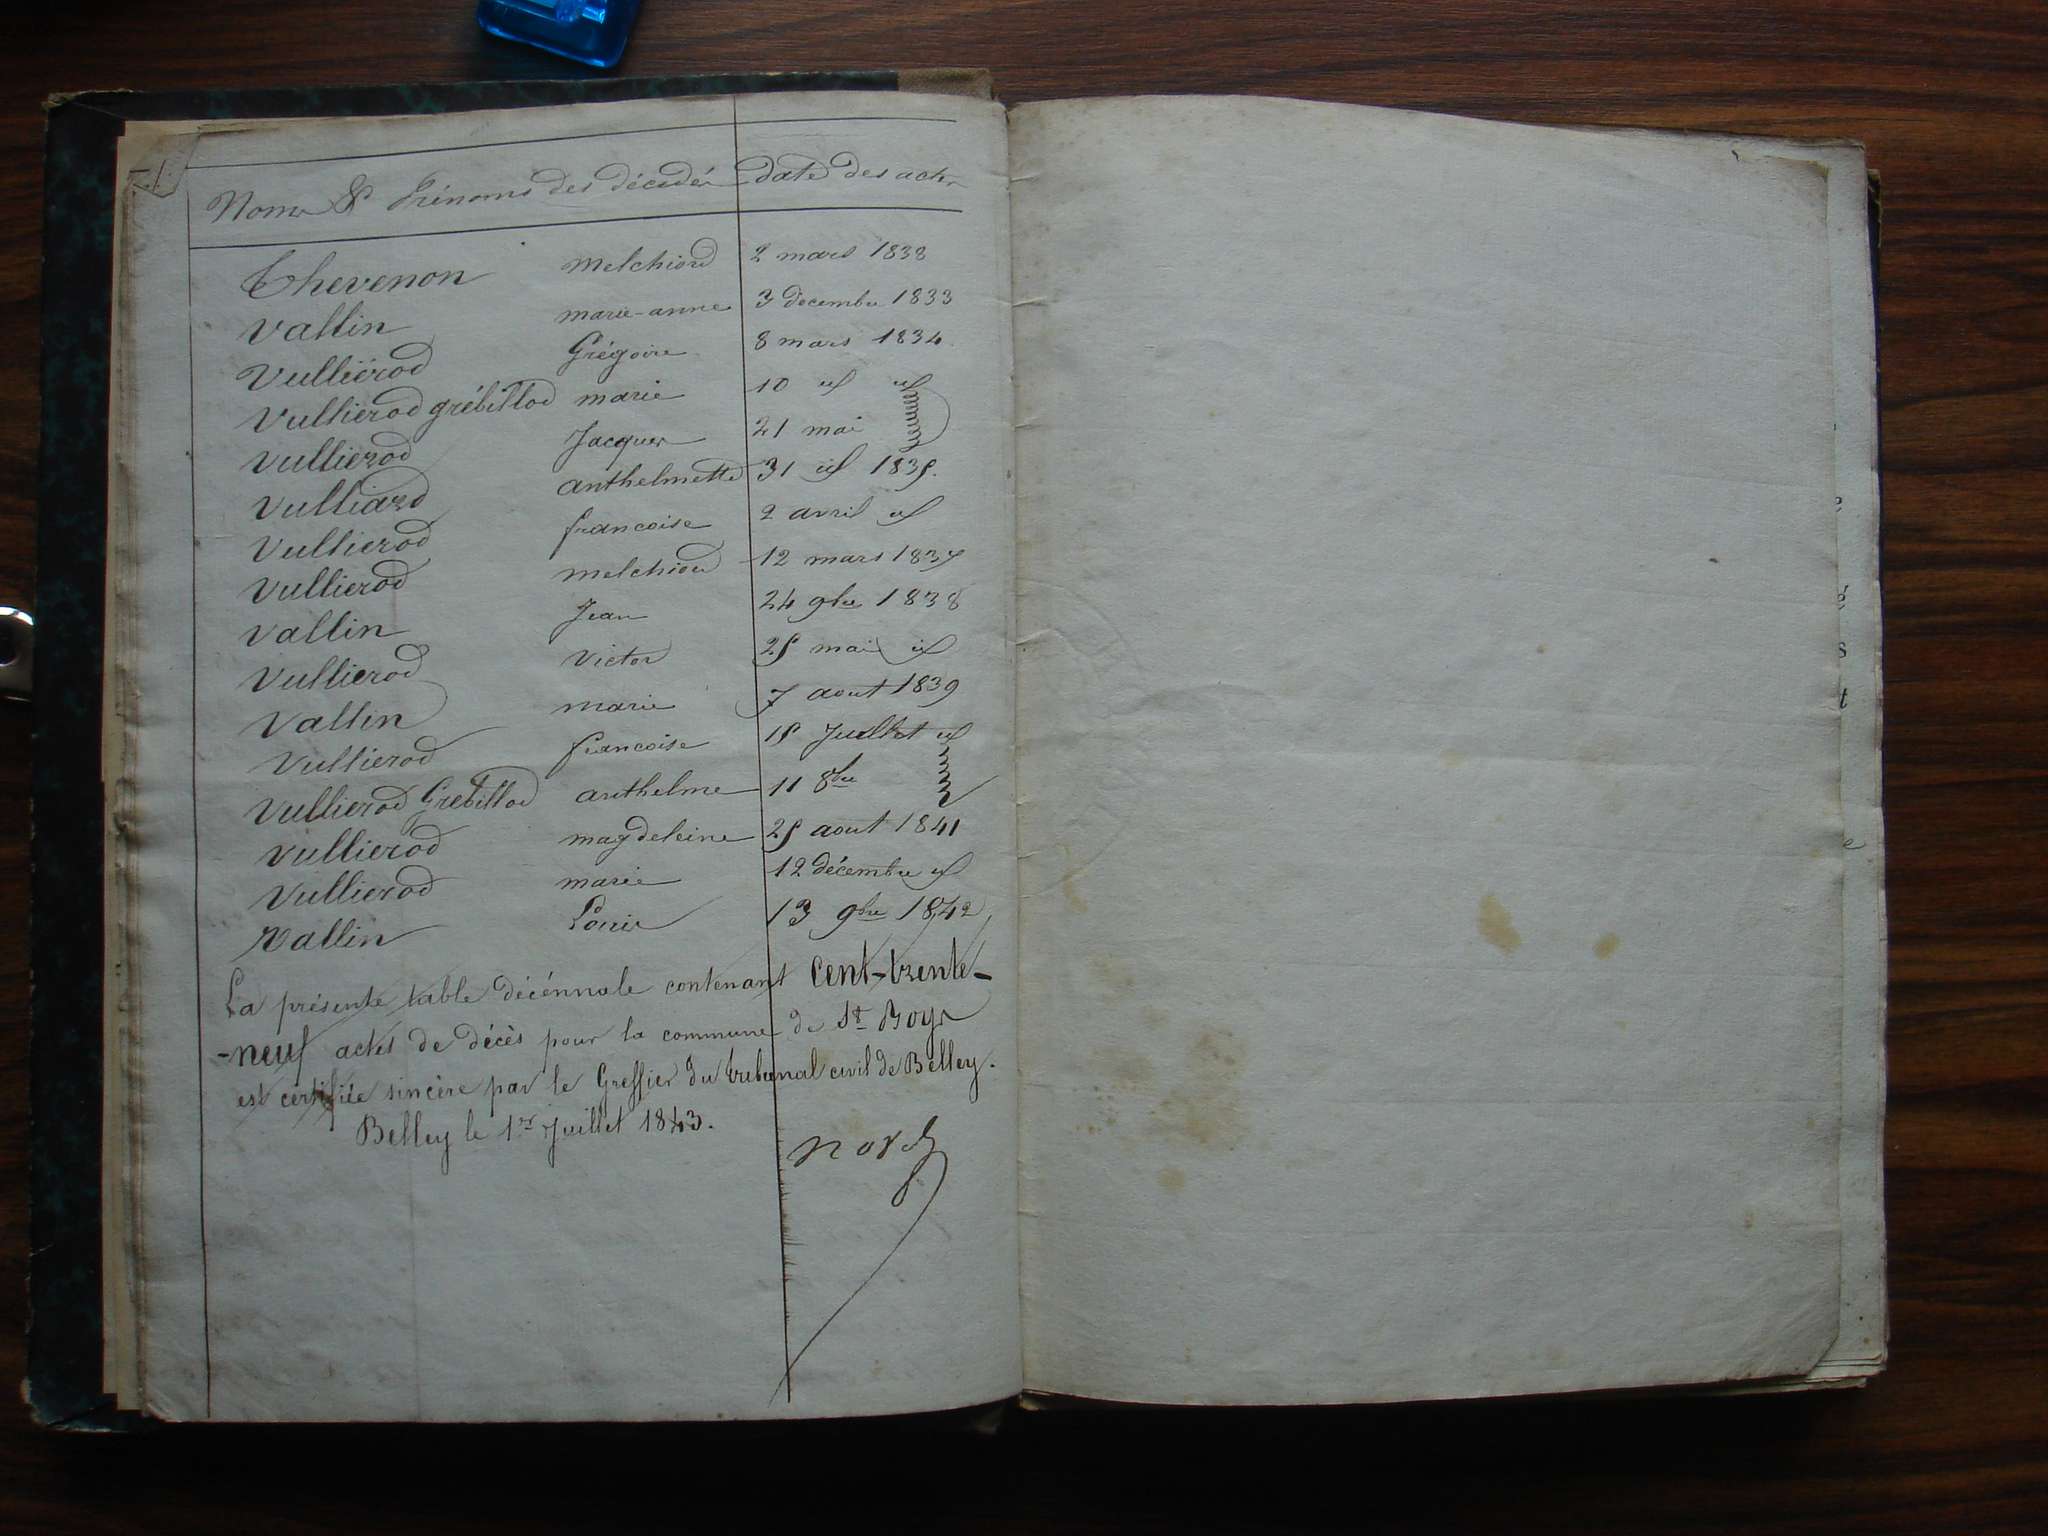 Noms & Prénoms des décédés date des actes
Thevenon melchiord 2 mars 1838
Vallin marie-anne 3 decembre 1833
Vulliérod Grégoire 8 mars 1834
Vullierod grébillod marie 10 id id
Vullierod Jacques 21 mai
Vulliard anthelmette 31 id 1835.
Vullierod francoise 2 avril id
Vullierod melchiord 12 mars 1837
Vallin Jean 24 9bre 1838
Vullierod Victor 25 mai id
Vallin marie 7 aout 1839
Vullierod francoise 15 Juillet id
Vullierod Grebillod anthelme 11 8bre
Vullierod magdeleine 25 aout 1841
Vullierod marie 12 décembre id
Vallin Louis 13 9bre 1842
La présente table décennale contenant Cent-trente-
-neuf actes de décès pour la commune de St Boys
est certifiée sincère par le Greffier du tribunal civil de Belley.
Belley le 1er Juillet 1843.